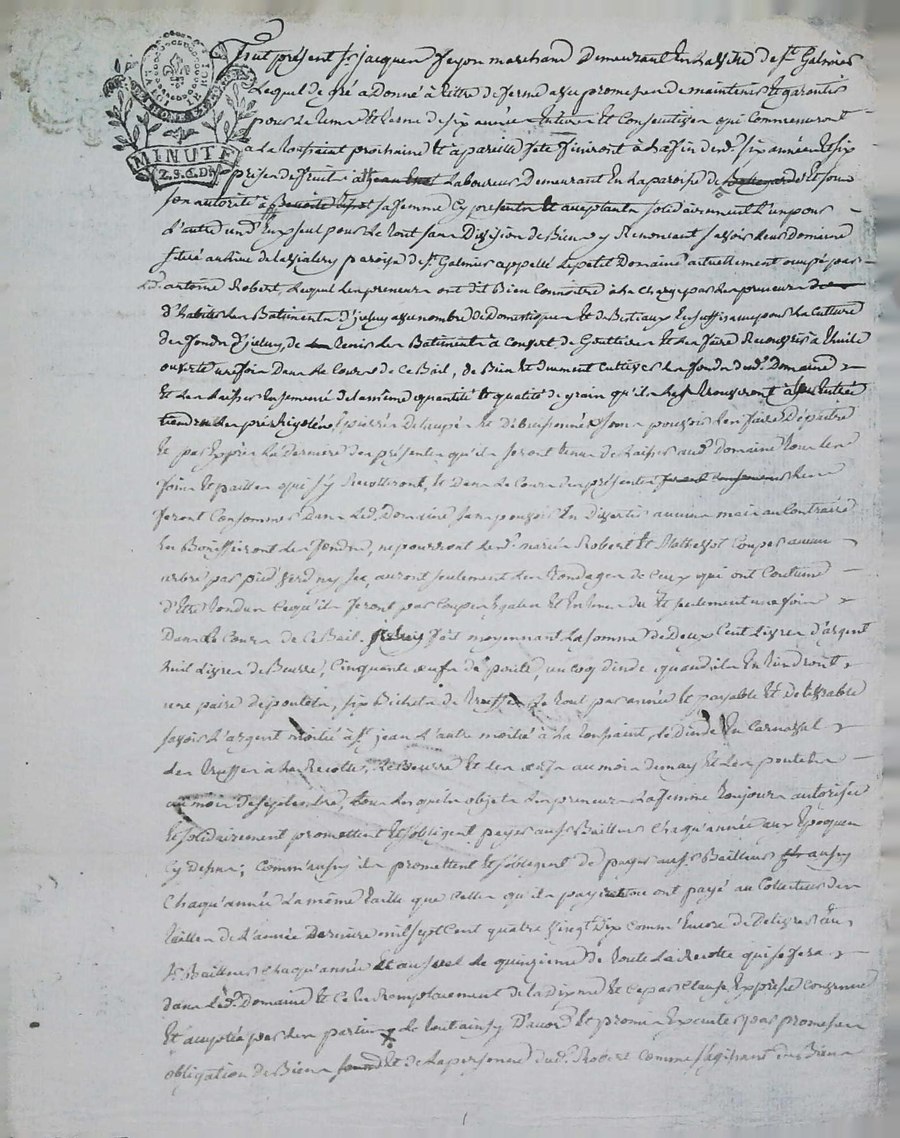 LA LOI LE ROI
MINUTE
2. S. 6. Drs
fut présent Sr. jacques feyon marchand Demeurant En la ville de St. Galmier
Lequel de gré a donné à titre de ferme avec promesse de maintenir Et garantir
pour Le tems Et terme de six années Entieres Et Consecutives qui Commenceront
a La toussaint prochaine Et a pareille fete finiront à La fin desd. six années Et six
prises de fruits à Laboureur Demeurant En La paroisse de Et sous
son autorité à sa femme Cy presents Et acceptants solidairement L'un pour
L'autre un d'Eux seul pour Le tout sans Division de Biens y Renoncant savoir Leur Domaine
situé au lieu de paroisse de St. Galmier appellé Le petit Domaine actuellement occupé par
Led. antoine Robert, Lequel Les preneurs ont dit Bien Connoitre à La Charge par Les preneurs
d'habiter Les Batiments d'iceluy avec nombre de Domestiques Et de Bestiaux En suffisance pour La Culture
des fonds d'iceluy, de tenir Les Batiments à Couvert de Gouttieres Et Les faire Recouvrir à thuile
ouverte une fois Dans Le Cours de Ce Bail, de Bien Et duement Cultiver Les fonds dud. Domaine
Et Les Laisser Ensemencé de La même quantité Et qualité de grain qu'ils Les trouveront à Leur Entrée
tiendront Les prés Rigolés, Epierrés De taupés Et débuissonnés sans pouvoir Les faire Dépaitre
Et par Exprès La derniere des présentes qu'ils seront tenus de Laisser aud. Domaine tous Les
foins Et pailles qui s'y Recolteront, Et Dans Le Cours des présentes Les
feront Consommer Dans Led. Domaine sans pouvoir En Divertir aucuns mais au Contraire
En Boniffieront Les fonds, ne pourront Lesd. mariés Robert Et Couper aucun
arbre par pied Verd ny sec, auront seulement Les tondages de Ceux qui ont Coutume
d'Etre tondus Ce qu'ils feront par Coupes Egales Et En tems du Et seulement une fois
Dans Le Cours de Ce Bail. fait moyennant La somme de Deux Cent Livres d'argent
huit Livres de Beurre, Cinquante œufs de poule, un coq dinde quand ils En tiendront
une paire de poulets, six Bichets de truffes Le tout par année Et payable Et delivrable
savoir L'argent moitié à St. jean L'autre moitié à La toussaint, Le dinde En Carnaval
Les truffes à La Recolte, Le Beurre Et Les œufs au mois de may Et Les poulets
au mois de septembre, tous Lesquels objets Les preneurs La femme toujours autorisée
Et solidairement promettent Et s'obligent payer aud. Bailleur Chaqu'année aux Epoques
Cy dessus; Comm'aussy ils promettent Et s'obligent de payer aud. Bailleur
Chaqu'année La même taille que Celle qu'ils payent ou ont payé au Collecteur des
tailles de L'année Derniere mil sept Cent quatre Vingt Dix Comm'Encore de Delivrer au
Sr. Bailleur Chaqu'année de quinzieme de toute La Recolte qui se fera
dans Led. Domaine Et Ce En Remplacement de La Dixme Et Ce par Clause Expresse Convenue
Et acceptée par Les parties Le tout ainsy D'accord Et promis Executer par promesse
obligation de Biens Et de La personne dud. Robert Comme s'agissant des Biens